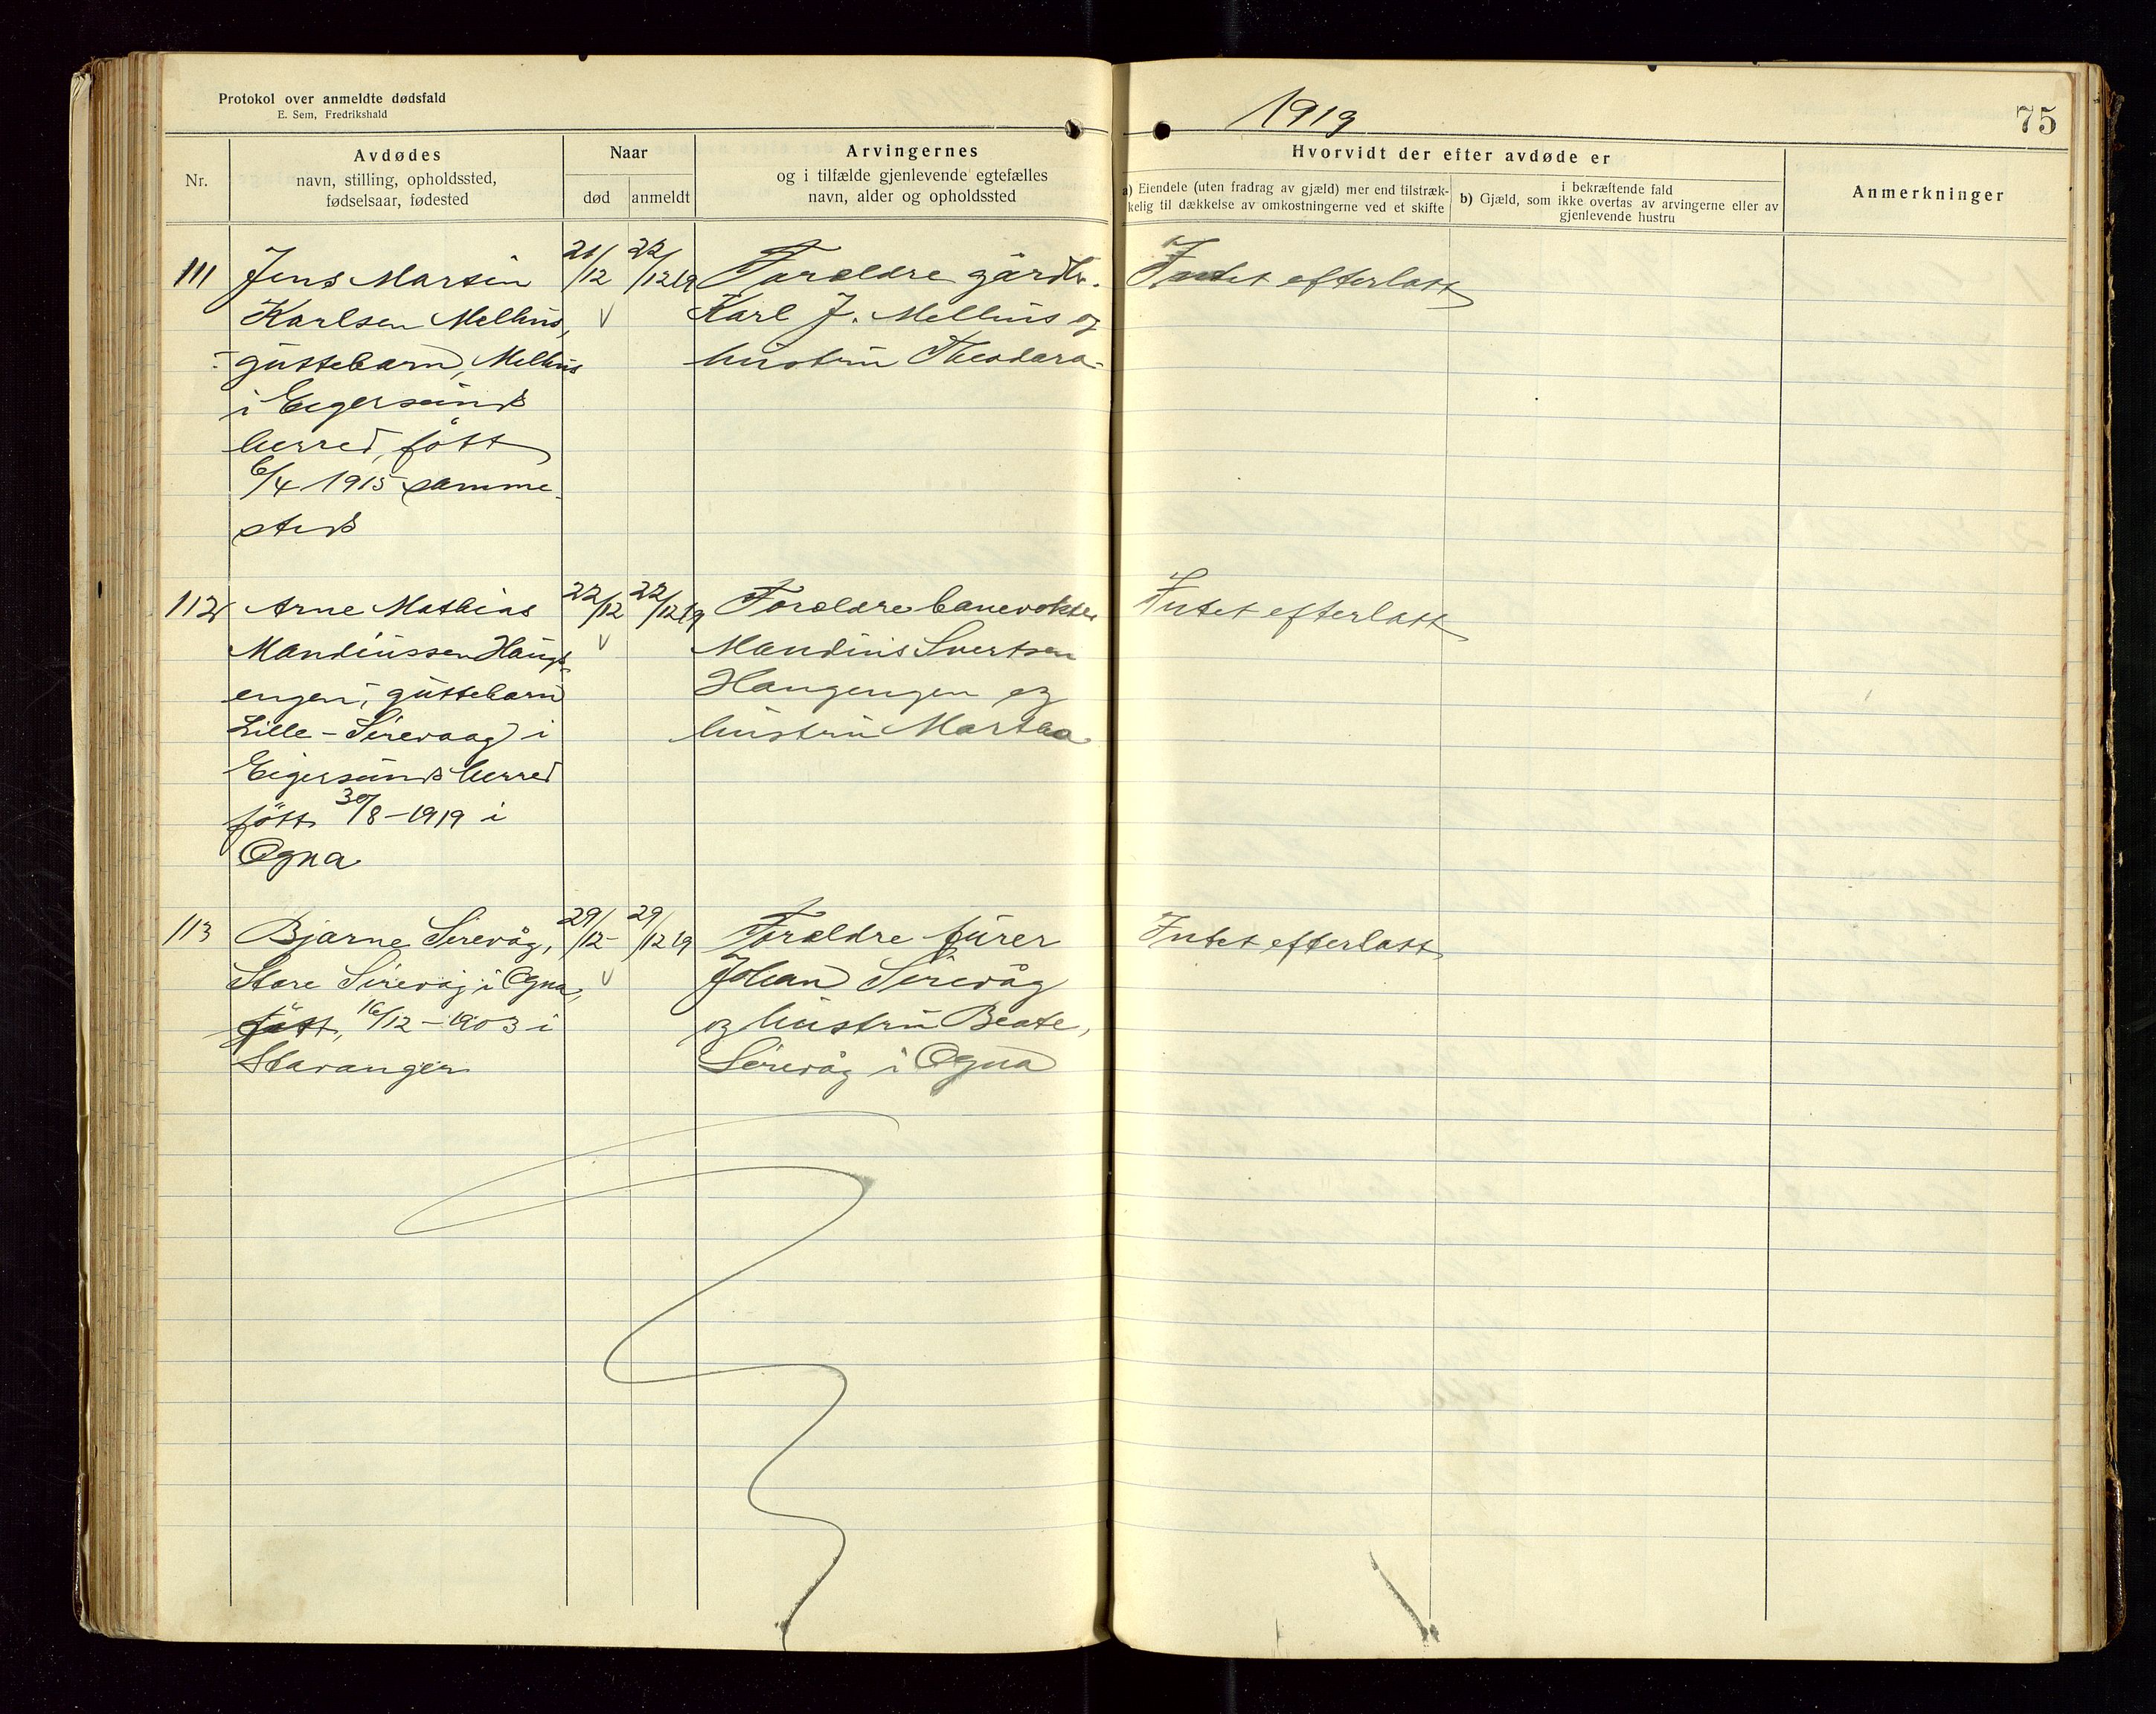 Protokol over anmeldte dødsfald
E. Sem, Fredrikshald
1919
75
Nr.
Avdødes
navn, stilling, opholdssted,
fødselsaar, fødested
Naar
død
anmeldt
Arvingernes
og i tilfælde gjenlevende egtefælles
navn, alder og opholdssted
Hvorvidt der efter avdøde er
a) Eiendele (uten fradrag av gjæld) mer end tilstræk-
kelig til dækkelse av omkostningerne ved et skifte
i bekræftende fald
b) Gjæld, som ikke overtas av arvingerne eller av
gjenlevende hustru
Anmerkninger
111
Jens Martin
Karlsen Melhus,
guttebarn, Melhus
i Eigersunds
herred, født
6/4 1915 samme-
steds
21/12
22/12 19
Forældre gårdbr.
Karl J. Melhus og
hustru Theodora
Intet efterlatt
112
Arne Mathias
Mandiussen Haug-
engen, guttebarn
Lille-Sirevaag i
Eigersunds herred
født 30/8-1919 i
Ogna
22/12
22/12 19
Forældre banevokter
Mandius Sivertsen
Haugengen og
hustru Martha
Intet efterlatt
113
Bjarne Sirevåg,
Store Sirevåg i Ogna,
født, 16/12-1903 i
Stavanger
29/12
29/12 19
Forældre fürer
Johan Sirevåg
og hustru Beate,
Sirevåg i Ogna
Intet efterlatt